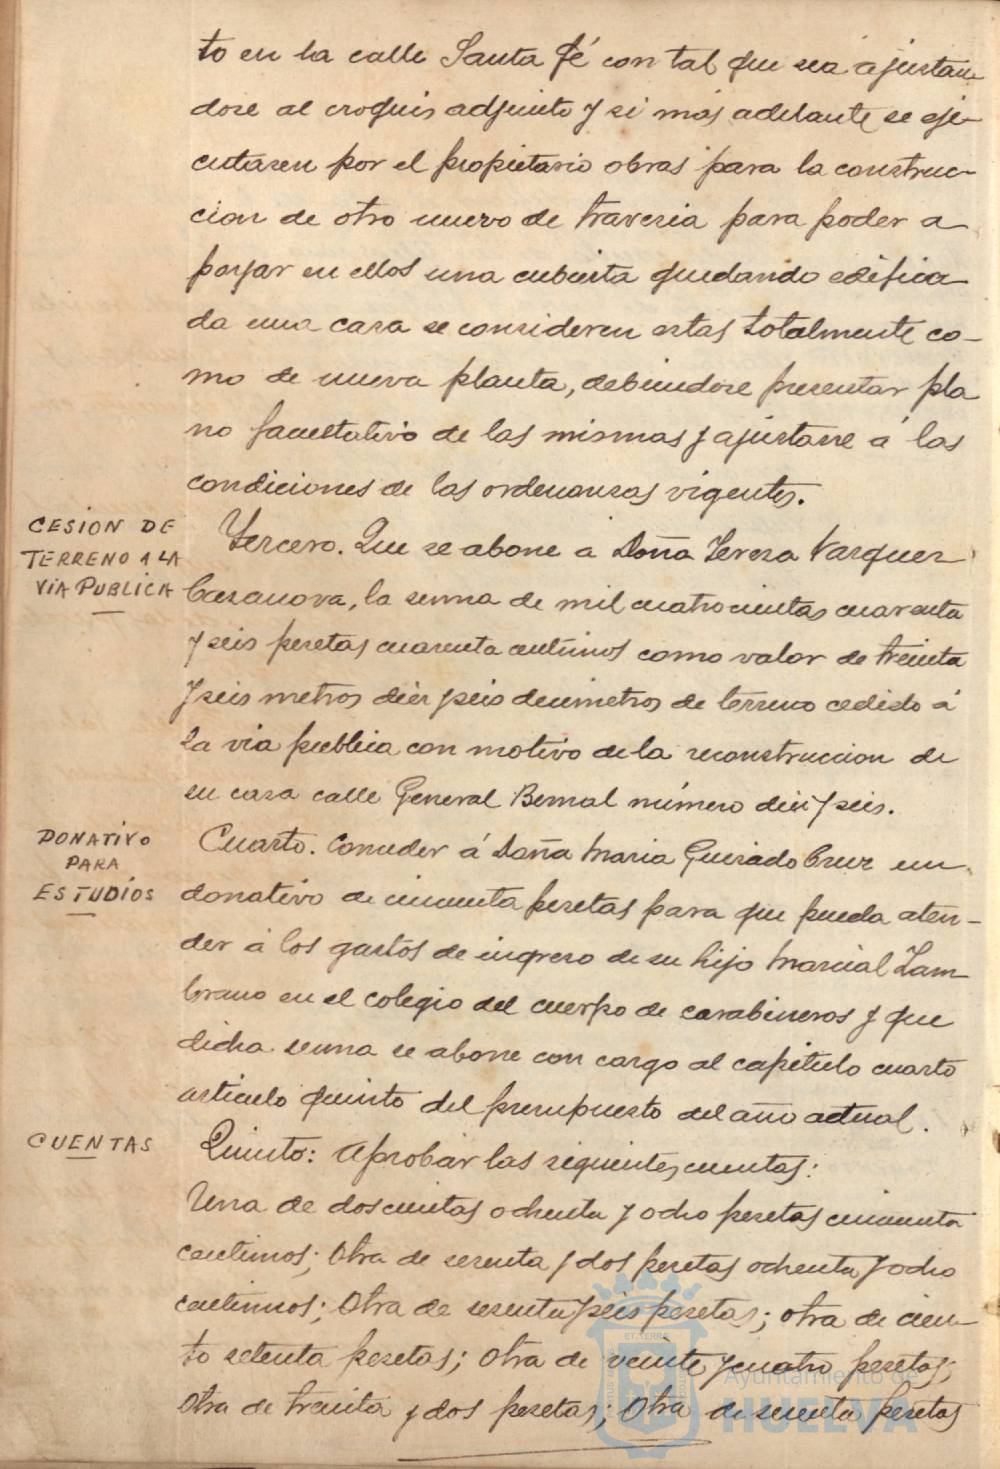 to en la calle Santa Fé con tal que sea ajustan
dose al croquis adjunto y si más adelante se eje-
cutasen por el propietario obras para la construc-
cion de otro nuevo de travesia para poder a
poyar en ellos una cubierta quedando edifica
da una casa se consideren estas totalmente co-
mo de nueva planta, debiendose presentar pla
no facultativo de las mismas y ajustarse á las
condiciones de las ordenanzas vigentes.
CESION DE
TERRENO A LA
VIA PUBLICA
Tercero. Que se abone á Doña Teresa Vazquez
Casanova, la suma de mil cuatrocientas cuarenta
y seis pesetas cuarenta centimos como valor de treinta
y seis metros diez y seis decimetros de terreno cedido á
la via publica con motivo de la reconstruccion de
su casa calle General Bernal número diez y seis.
DONATIVO
PARA
ESTUDIOS
Cuarto. Conceder á Doña Maria Guisado Cruz un
donativo de cincuenta pesetas para que pueda aten-
der á los gastos de ingreso de su hijo Marcial Zam
brano en el colegio del cuerpo de carabineros y que
dicha suma se abone con cargo al capitulo cuarto
articulo quinto del presupuesto del año actual.
CUENTAS
Quinto: Aprobar las siguientes cuentas:
Una de doscientas ochenta y ocho pesetas cincuenta
centimos; Otra de sesenta y dos pesetas ochenta y ocho
centimos; Otra de sesenta y seis pesetas; otra de cien-
to setenta pesetas; Otra de veinte y cuatro pesetas;
Otra de treinta y dos pesetas; Otra de sesenta pesetas
Ayuntamiento de
HUELVA